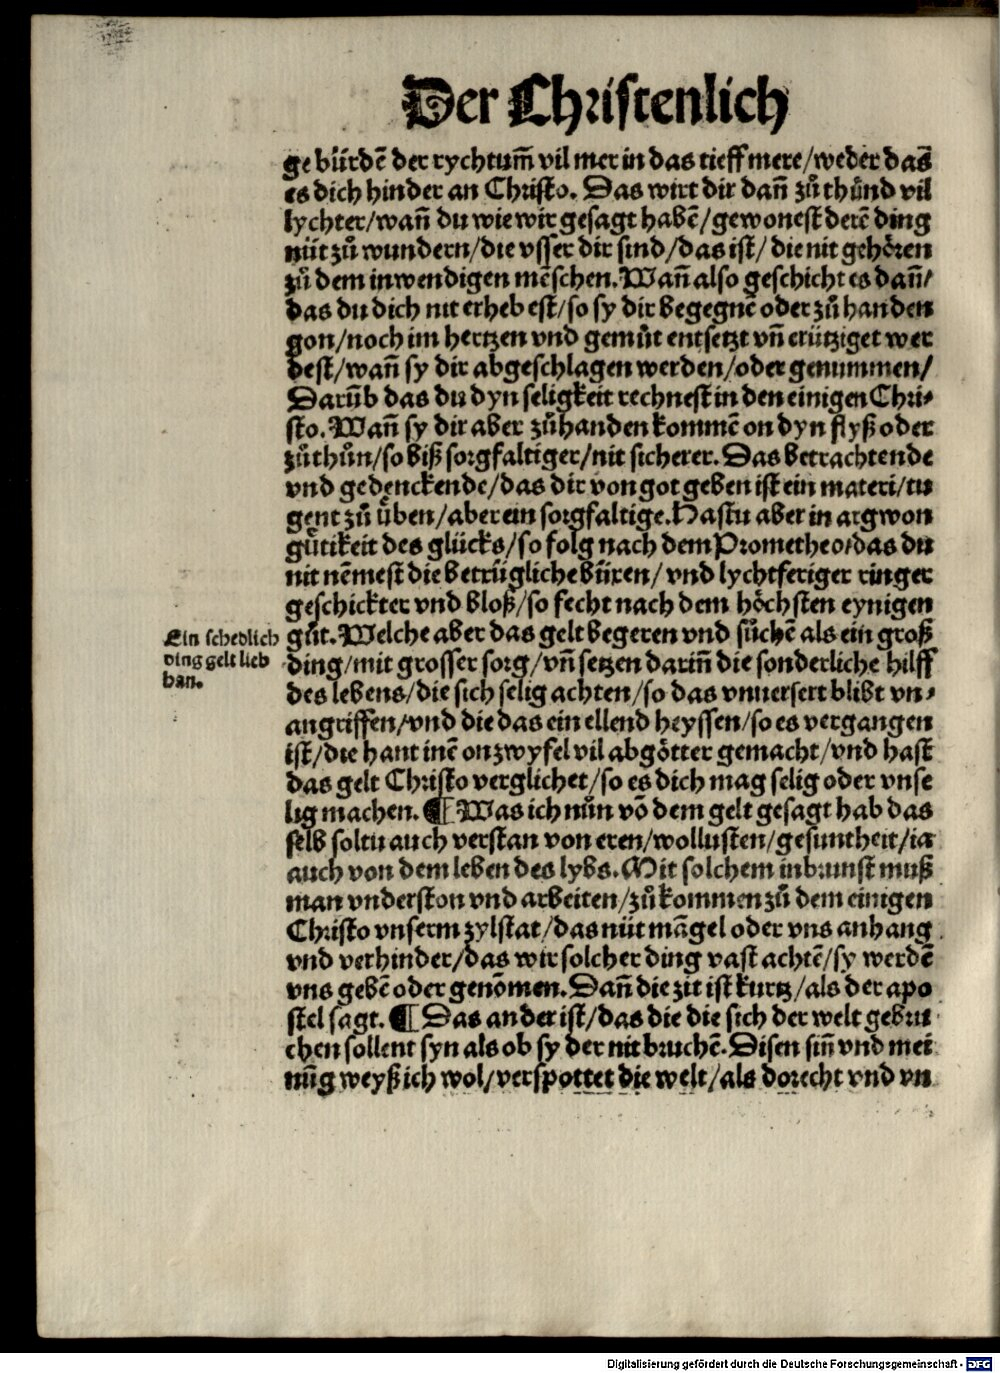 Der Christenlich
ge bürdē der rychtum̄ vil mer in das tieff mere/weder das̄
es dich hinder an Christo. Das wirt dir dan̄ zů thůnd vil
lychter/wan̄ du wie wir gesagt habē/gewonest derē ding
nüt zů wundern/die vsser dir sind/das ist/ die nit gehören
zů dem inwendigen mēschen. Wan̄ also geschicht es dan̄/
das du dich nit erheb est/so sy dir begegnē oder zů handen
gon/noch im hertzen vnd gemüt entsetzt vn̄ crütziget wer
dest/wan̄ sy dir abgeschlagen werden/oder genummen/
Darūb das du dyn seligkeit rechnest in den einigen Chri⸗
sto. Wan̄ sy dir aber zů handen kommē on dyn flyß oder
zů thůn/so biß sorgfaltiger/nit sicherer. Das betrachtende
vnd gedenckende/das dir von got geben ist ein materi/tu
gent zů üben/aber ein sorgfaltige. Hastu aber in argwon
gütikeit des glücks/so folg nach dem Prometheo/das du
nit nēmest die betrügliche büxen/ vnd lychtferiger ringer
geschickter vnd bloß/so fecht nach dem höchsten eynigen
Ein schedlich
ding gelt lieb
han.
gůt. Welche aber das gelt begeren vnd sůchē als ein groß
ding/mit grosser sorg/vn̄ setzen darin̄ die sonderliche hilff
des lebens/die sich selig achten/so das vnuersert blibt vn⸗
angriffen/vnd die das ein ellend heyssen/so es vergangen
ist/die hant inē on zwyfel vil abgötter gemacht/vnd hast
das gelt Christo verglichet/so es dich mag selig oder vnse
lig machen. ¶ Was ich nůn vō dem gelt gesagt hab das
selb soltu auch verstan von eren/wollusten/gesuntheit/ia
auch von dem leben des lybs. Mit solchem inbrunst muß
man vnderston vnd arbeiten/zů kommen zů dem einigen
Christo vnserm zylstat/das nüt māgel oder vns anhang
vnd verhinder/das wir solcher ding vast achtē/sy werdē
vns gebē oder genōmen. Dan̄ die zit ist kurtz/als der apo
stel sagt. ¶ Das ander ist/das die die sich der welt gebru
chen sollent syn als ob sy der nit bruchē. Disen sin̄ vnd mei
nūg weyß ich wol/verspottet die welt/als dorecht vnd vn
Digitalisierung gefördert durch die Deutsche Forschungsgemeinschaft - DFG